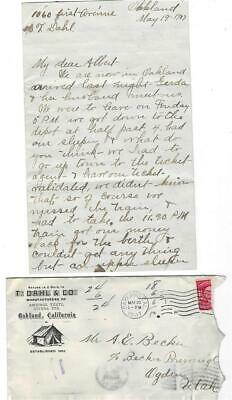 1060 first Avenue
% T. Dahl
Oakland
May 19
My dear Albert
We are now in Oakland
arrived last night. Gerda
& her husband met us.
We were to leave on Friday
5 P.M. we got down to the
depot at half past 4 had
our sleeper & what do
you think we had to
go up town to the ticket
agent & have our ticket
validated, we didn't know
that so of course we
missed the train, &
had to take the 11.30 P.M
train got our money
back for the birth &
couldnt get any thing
but an upper sleeper
T. DAHL & CO.
MANUFACTURERS OF
AWNINGS, TENTS,
Oakland, California
ESTABLISHED
Mr A. E. Becker
% Becker
Ogden
Utah